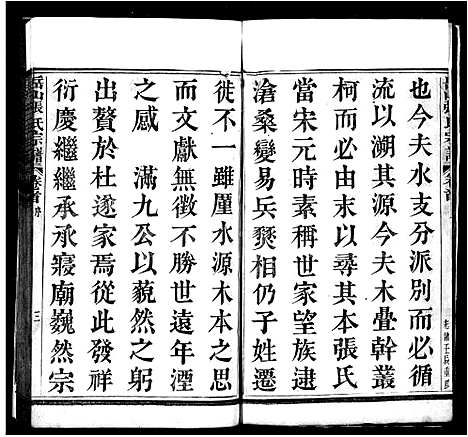 也今夫水支分派別而必循
流以溯其源今夫木疊幹叢
柯而必由末以尋其本張氏
當宋元時素稱世家望族逮
滄桑變易兵燹相仍子姓遷
徙不一雖厪水源木本之思
而文獻無徵不勝世遠年湮
之感 滿九公以藐然之躬
出贅於杜遂家焉從此發祥
衍慶繼繼承承寢廟巍然宗
張氏宗譜
卷首
三